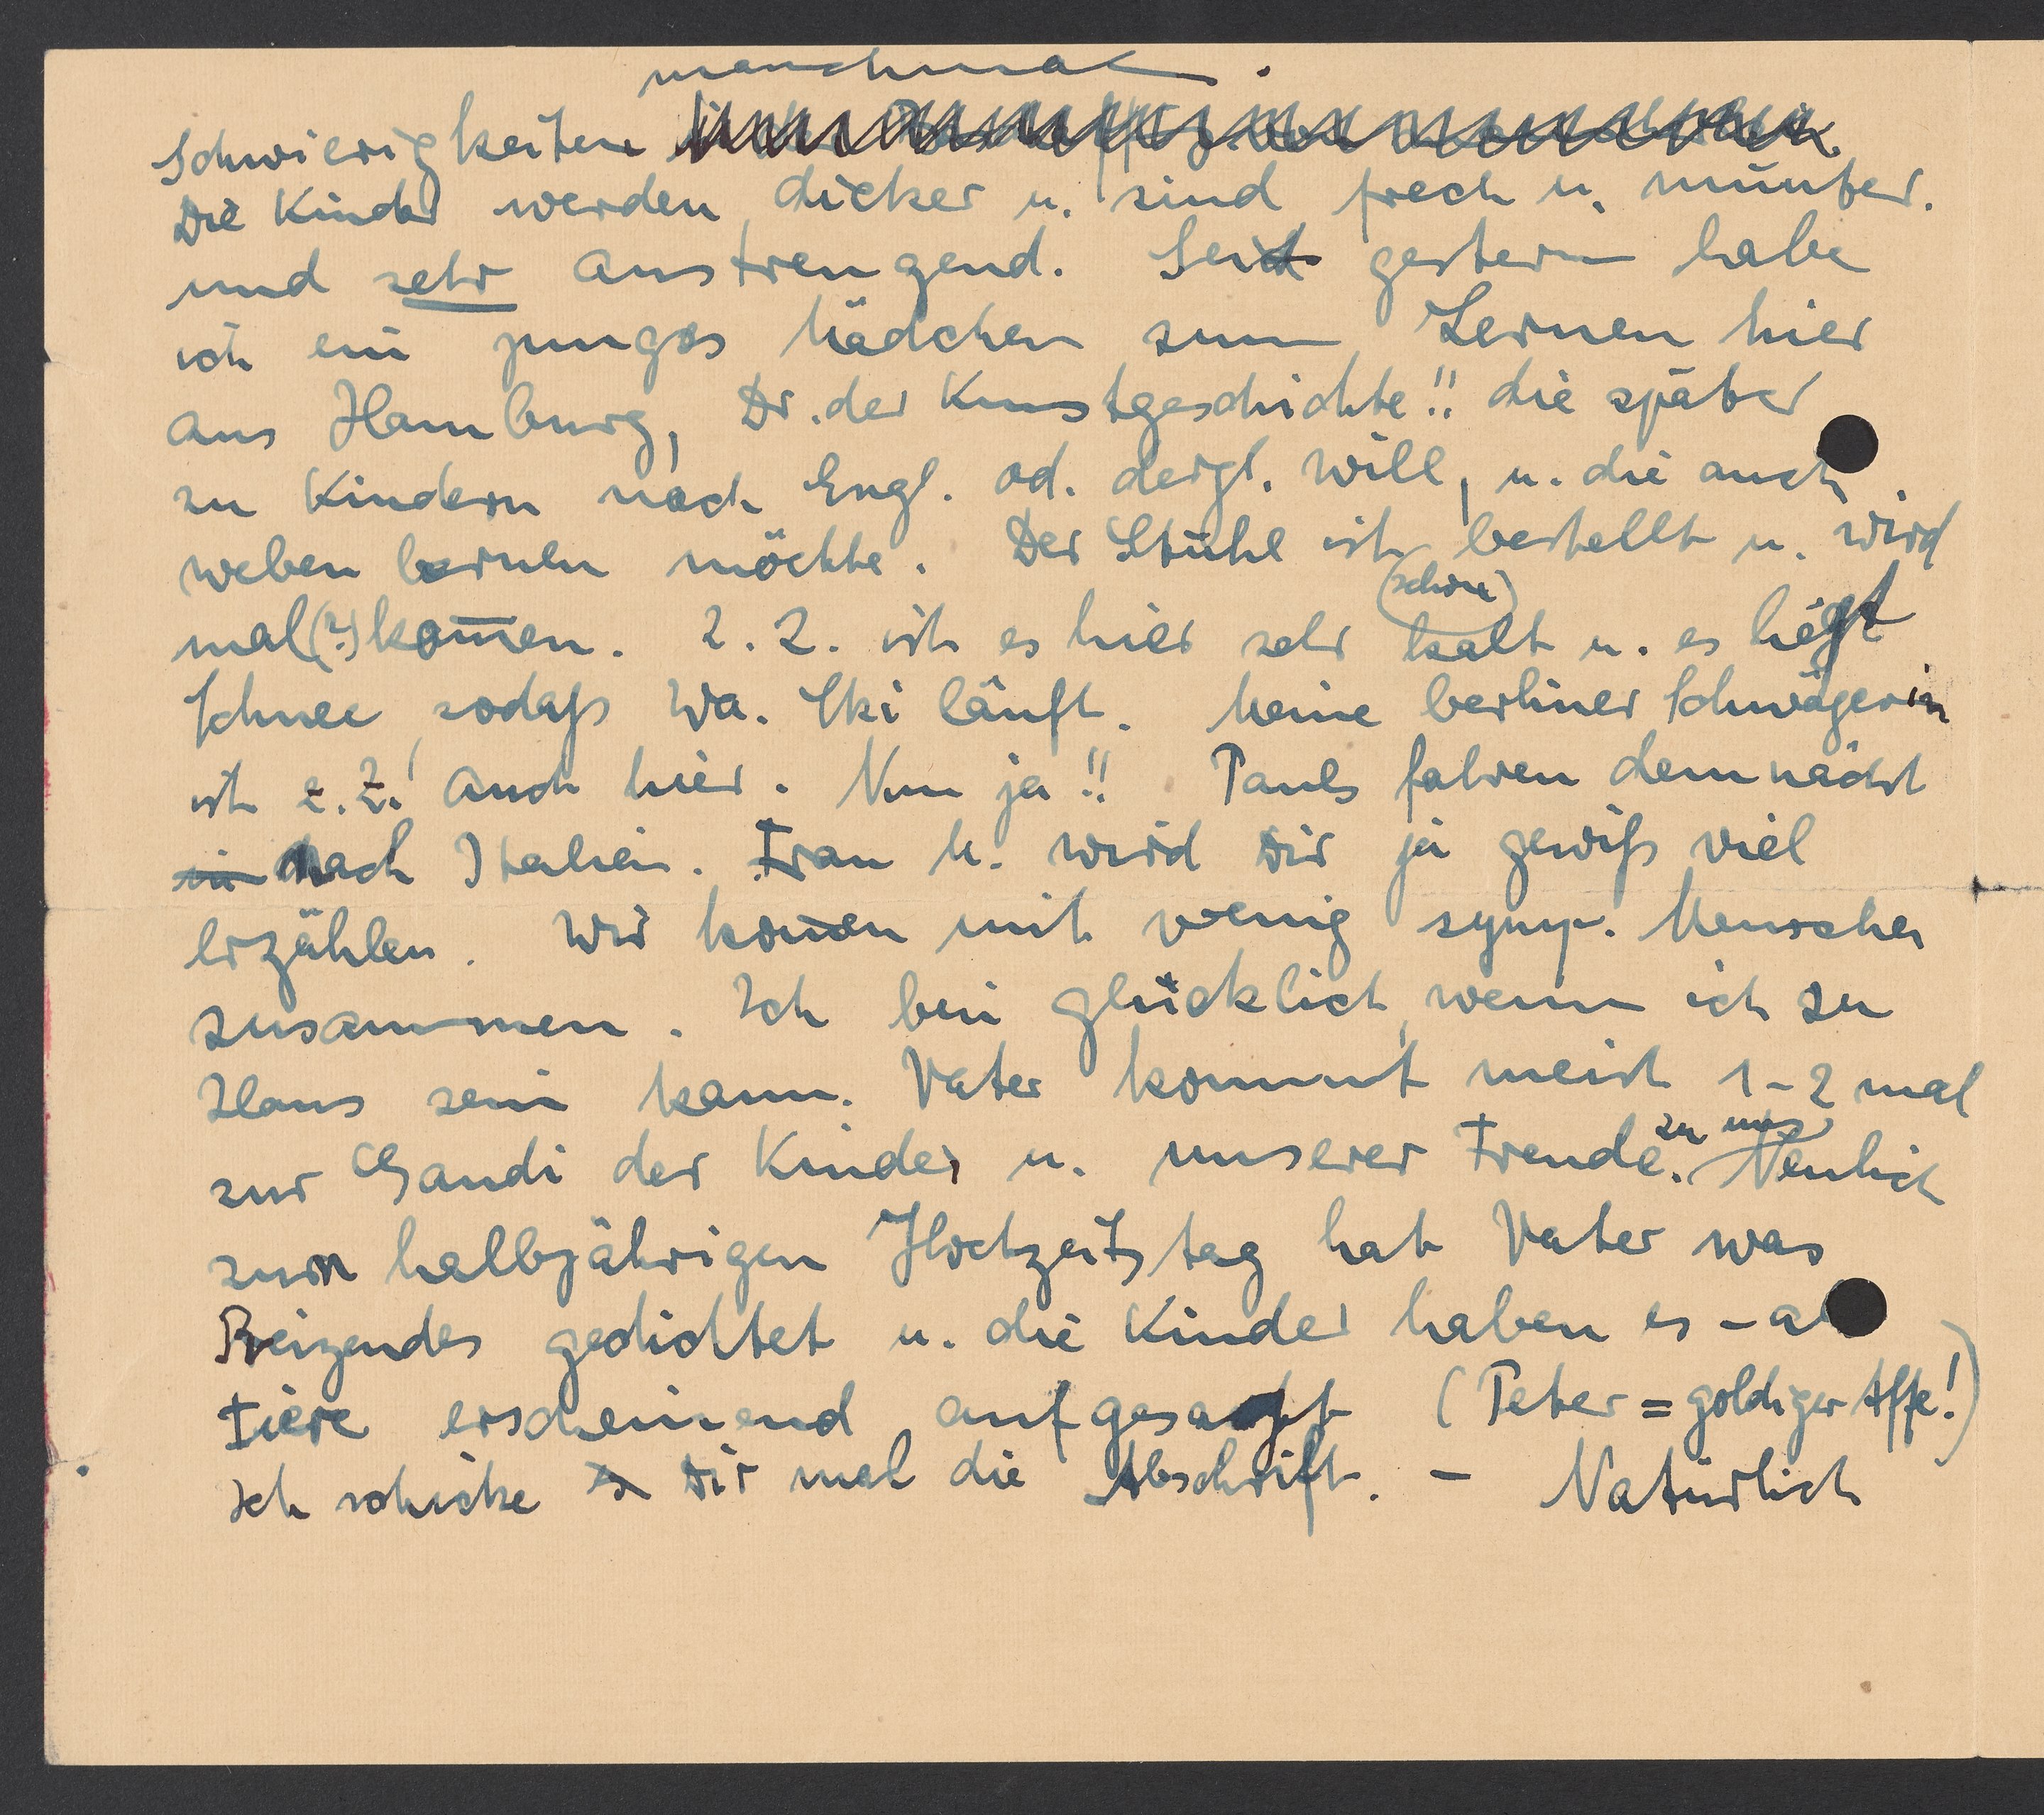 manchmal.
Schwierigkeiten
Die Kinder werden dicker u. sind frech u. munter.
und sehr anstrengend. Seit gestern habe
ich ein junges Mädchen zum Lernen hier
aus Hamburg, Dr. der Kunstgeschichte!! die später
zu Kindern nach Engl. od. dergl. will, u. die auch
weben lernen möchte. Der Stuhl ist bestellt u. wird
(schön)
mal (?) kom̅en. z. Z. ist es hier sehr kalt u. es liegt
Schnee, sodaß Wa. Ski läuft. Meine berliner Schwägerin
ist z. Z! auch hier. Nun ja!! Pauls fahren demnächst
in nach Italien. Frau M. wird Dir ja gewiß viel
erzählen. Wir kom̅en mit wenig symp. Menschen
zusammen. Ich bin glücklich, wenn ich zu
Haus sein kann. Vater kommt meist 1-2 mal
zu uns
zur Gaudi der Kinder u. unserer Freude. Neulich
zum halbjährigen Hochzeitstag hat Vater was
Reizendes gedichtet u. die Kinder haben es - al
Tiere erscheinend aufgesagt (Peter = goldiger Affe!)
Ich schicke Dir mal die Abschrift. - Natürlich